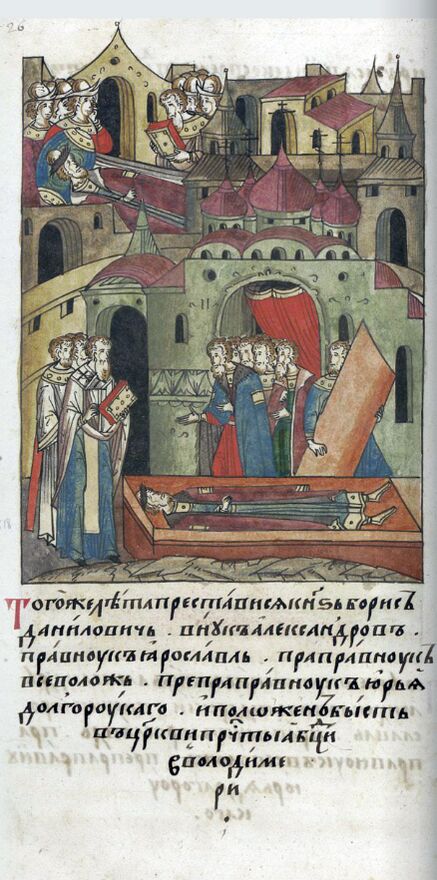 26
Тогожелѣтапрестависякнѕьборисъ
даниловичь . внукъалександровъ .
правноукъярославль . праправноукъ
всеволожь . препраправноукъюрья
долгороукаго . иположенобысть
въцрквипрчтыꙗбцн
вволодиме
ри